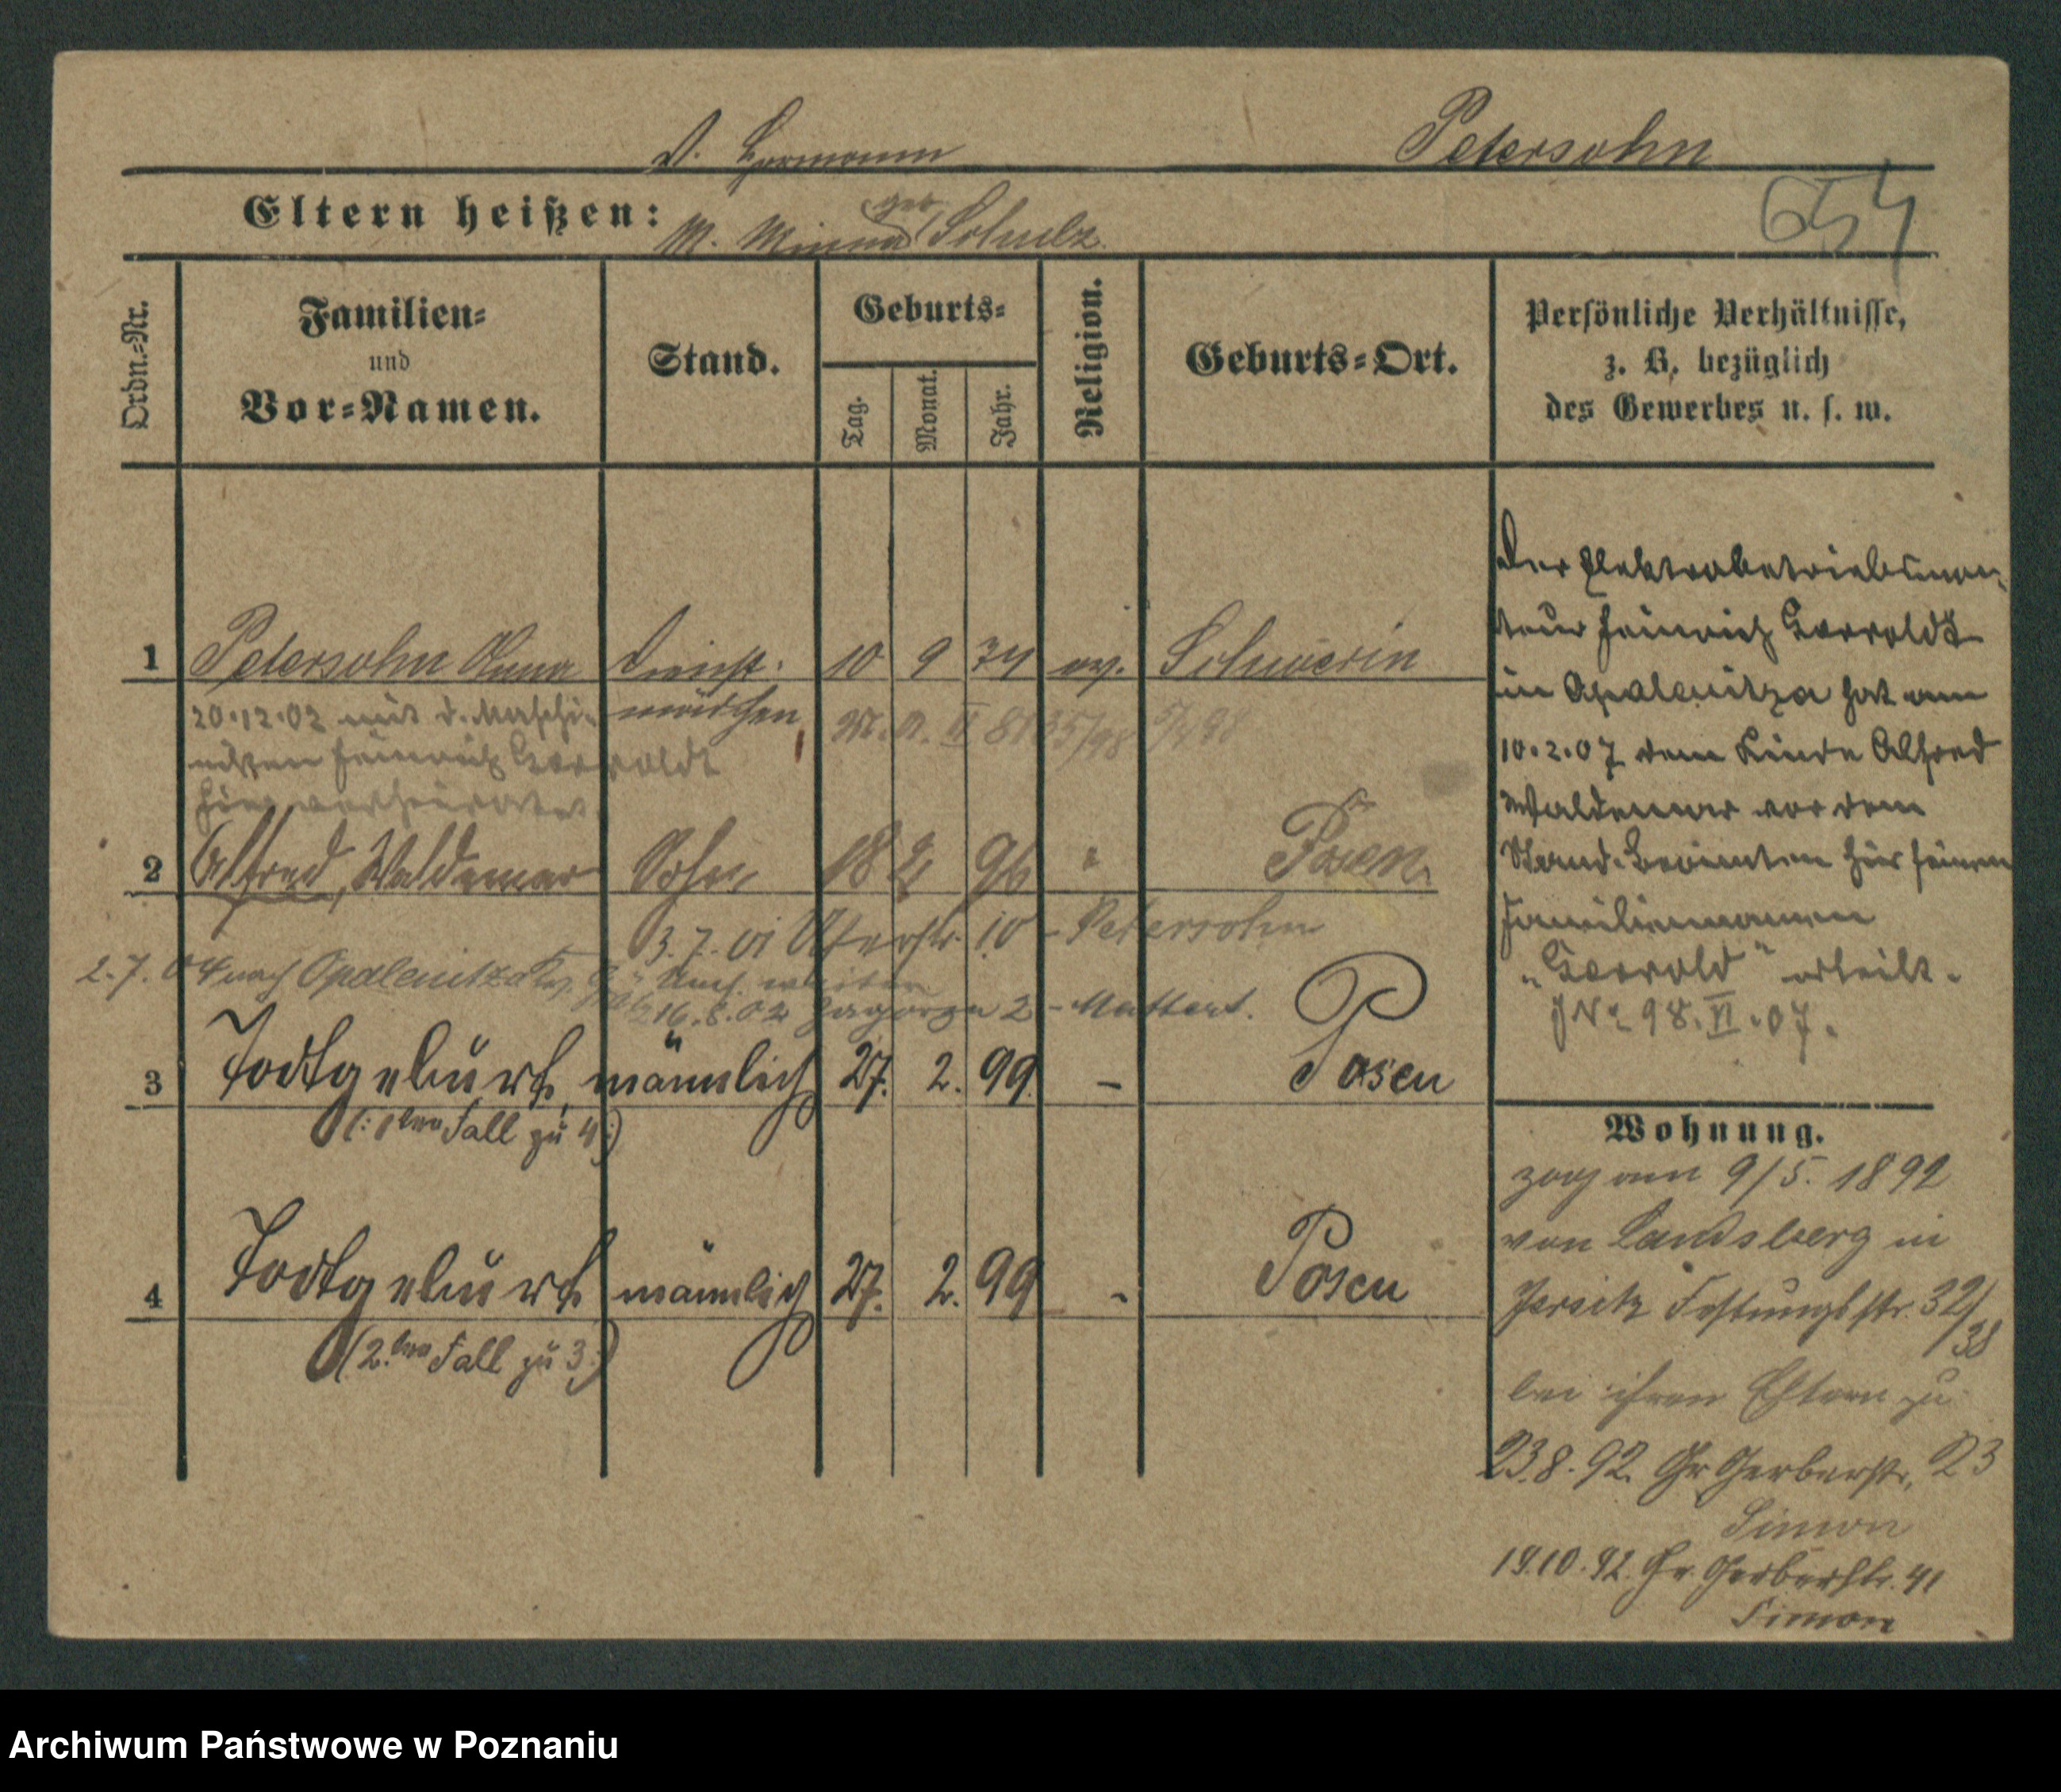 V. Hermann Petersohn
Eltern heißen: M. Minna geb. Schulz.
654
Ordn.-Nr.
Familien-
und
Vor-Namen.
Stand.
Geburts-
Tag.
Monat.
Jahr.
Religion.
Geburts-Ort.
Persönliche Verhältnisse,
z. B. bezüglich
des Gewerbes u. s. w.
1 Petersohn Anna Dienst- 10 9 74 ev. Schwerin
mädchen
20.12.02 mit d. Maschi-
nisten Heinrich
hier verheiratet.
2 Alfred, Waldemar Sohn 18 96 " Posen.
3.7.01 10 - Petersohn
2.7.04 nach Opalenitza
16.8.02 Zagorze 2 -
3 Todtgeburt, männlich 27. 2. 99. - Posen
(: 1ter Fall zu 4 :)
4 Todtgeburt männlich 27. 2. 99 - Posen
(2.ter Fall zu 3 :)
Der Elektrobetriebsmon-
teur Heinrich
in Opalenitza hat am
10.2.07 dem Kinde Alfred
Waldemar vor dem
Stand. Beamten hier seinen
Familiennamen
erteilt.
J No 98. VI. 07.
Wohnung.
zog am 9/5. 1892
von Landsberg in
Jersitz Festungsstr. 32/
38
bei ihren Eltern zu
23.8.92. Gr Gerberstr. 23
Simon
19.10.92. Gr. Gerberstr. 41
Simon
Archiwum Państwowe w Poznaniu